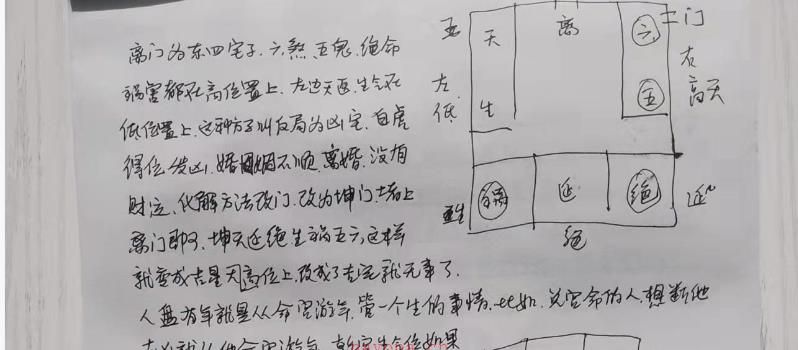 离门为东四宅子、六煞、五鬼、绝命
祸害都在高位置上、左边天医、生气在
低位置上、这种方子叫反局为凶宅、白虎
得位发凶、婚姻不顺、离婚、没有
财运、化解方法改门、改为坤门、堵上
离门即可、坤天延绝生祸五六、这样
就变成吉星天高位上、改成了吉宅就无事了.
人盘为年就是从命宫游年、管一个生的事情、比如、兑宫命的人、想断他
五 天 离 六 二门
左 低 生 五 右 高 天
生 祸 延 绝 延
绝